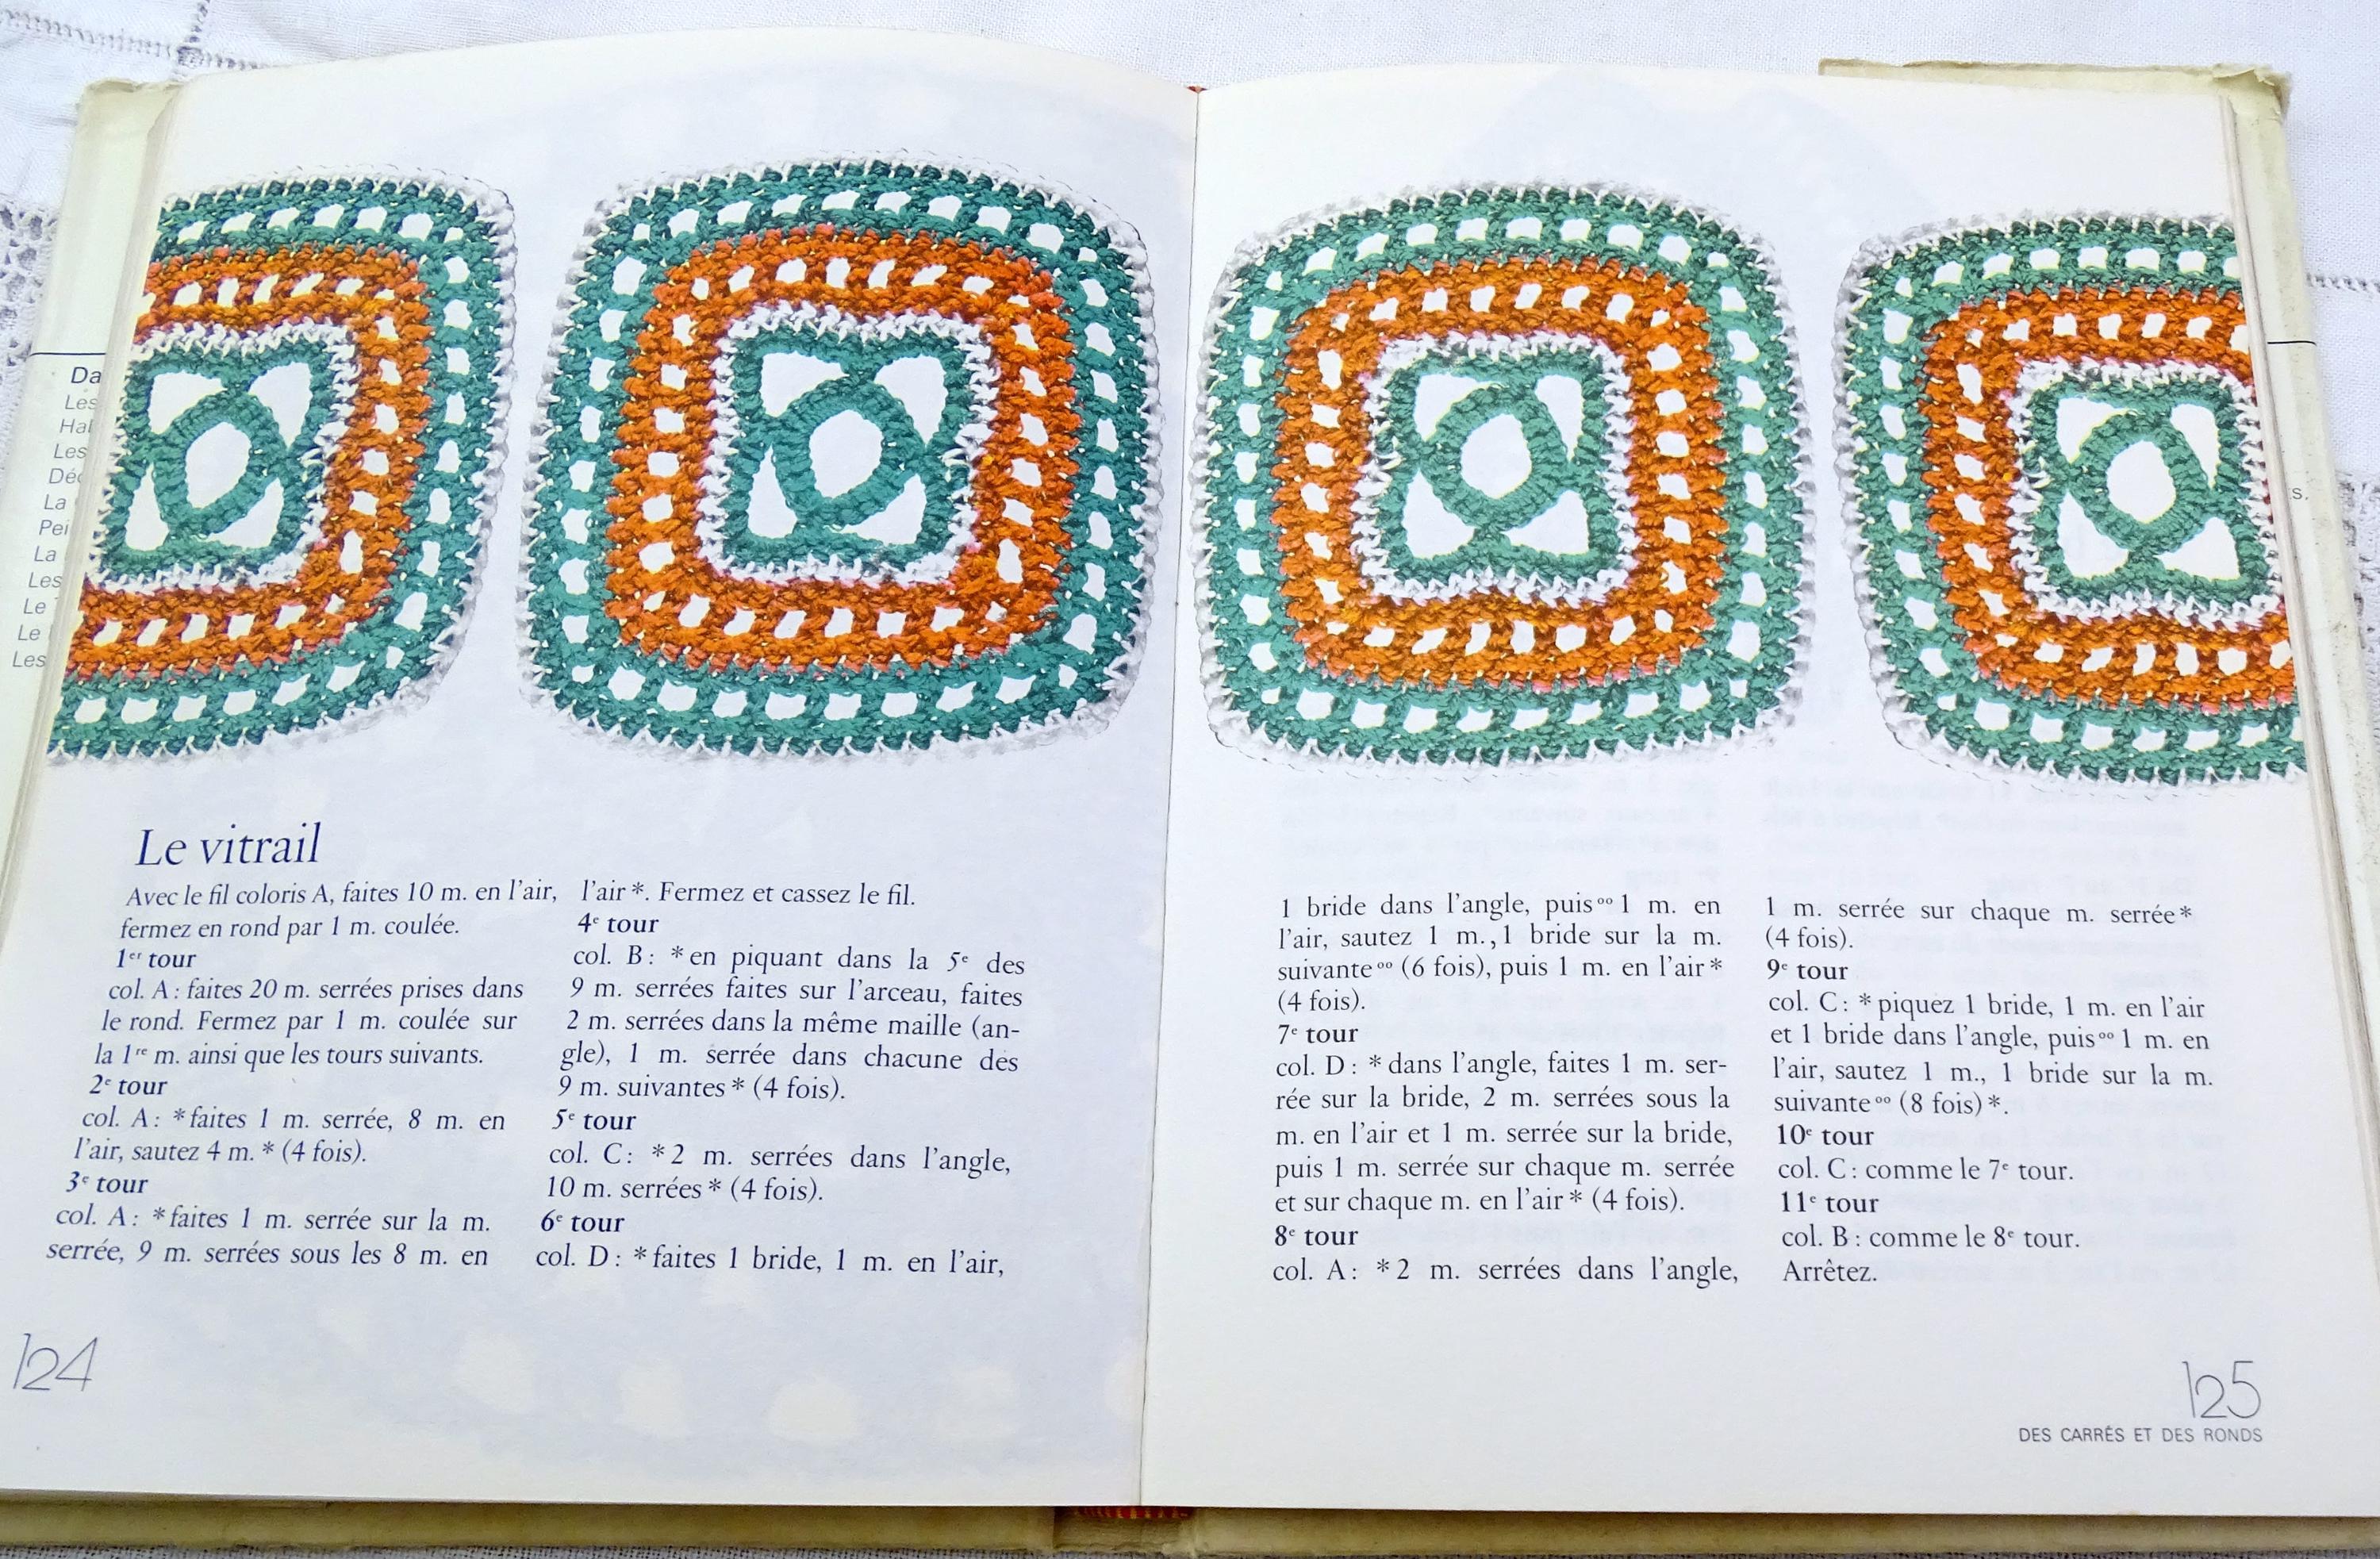 Da
Les
Ha
Les
Déc
La
Pei
La
Les
Le
Le
Les
Le vitrail
Avec le fil coloris A, faites 10 m. en l'air,
fermez en rond par 1 m. coulée.
1er tour
col. A : faites 20 m. serrées prises dans
le rond. Fermez par 1 m. coulée sur
la 1re m. ainsi que les tours suivants.
2e tour
col. A : *faites 1 m. serrée, 8 m. en
l'air, sautez 4 m. * (4 fois).
3e tour
col. A : *faites 1 m. serrée sur la m.
serrée, 9 m. serrées sous les 8 m. en
l'air *. Fermez et cassez le fil.
4e tour
col. B : *en piquant dans la 5e des
9 m. serrées faites sur l'arceau, faites
2 m. serrées dans la même maille (an-
gle), 1 m. serrée dans chacune des
9 m. suivantes * (4 fois).
5e tour
col. C : *2 m. serrées dans l'angle,
10 m. serrées * (4 fois).
6e tour
col. D : *faites 1 bride, 1 m. en l'air,
124
1 bride dans l'angle, puis °° 1 m. en
l'air, sautez 1 m., 1 bride sur la m.
suivante °° (6 fois), puis 1 m. en l'air *
(4 fois).
7e tour
col. D : *dans l'angle, faites 1 m. ser-
rée sur la bride, 2 m. serrées sous la
m. en l'air et 1 m. serrée sur la bride,
puis 1 m. serrée sur chaque m. serrée
et sur chaque m. en l'air * (4 fois).
8e tour
col. A : *2 m. serrées dans l'angle,
1 m. serrée sur chaque m. serrée *
(4 fois).
9e tour
col. C : *piquez 1 bride, 1 m. en l'air
et 1 bride dans l'angle, puis °° 1 m. en
l'air, sautez 1 m., 1 bride sur la m.
suivante °° (8 fois) *.
10e tour
col. C : comme le 7e tour.
11e tour
col. B : comme le 8e tour.
Arrêtez.
s.
125
DES CARRÉS ET DES RONDS